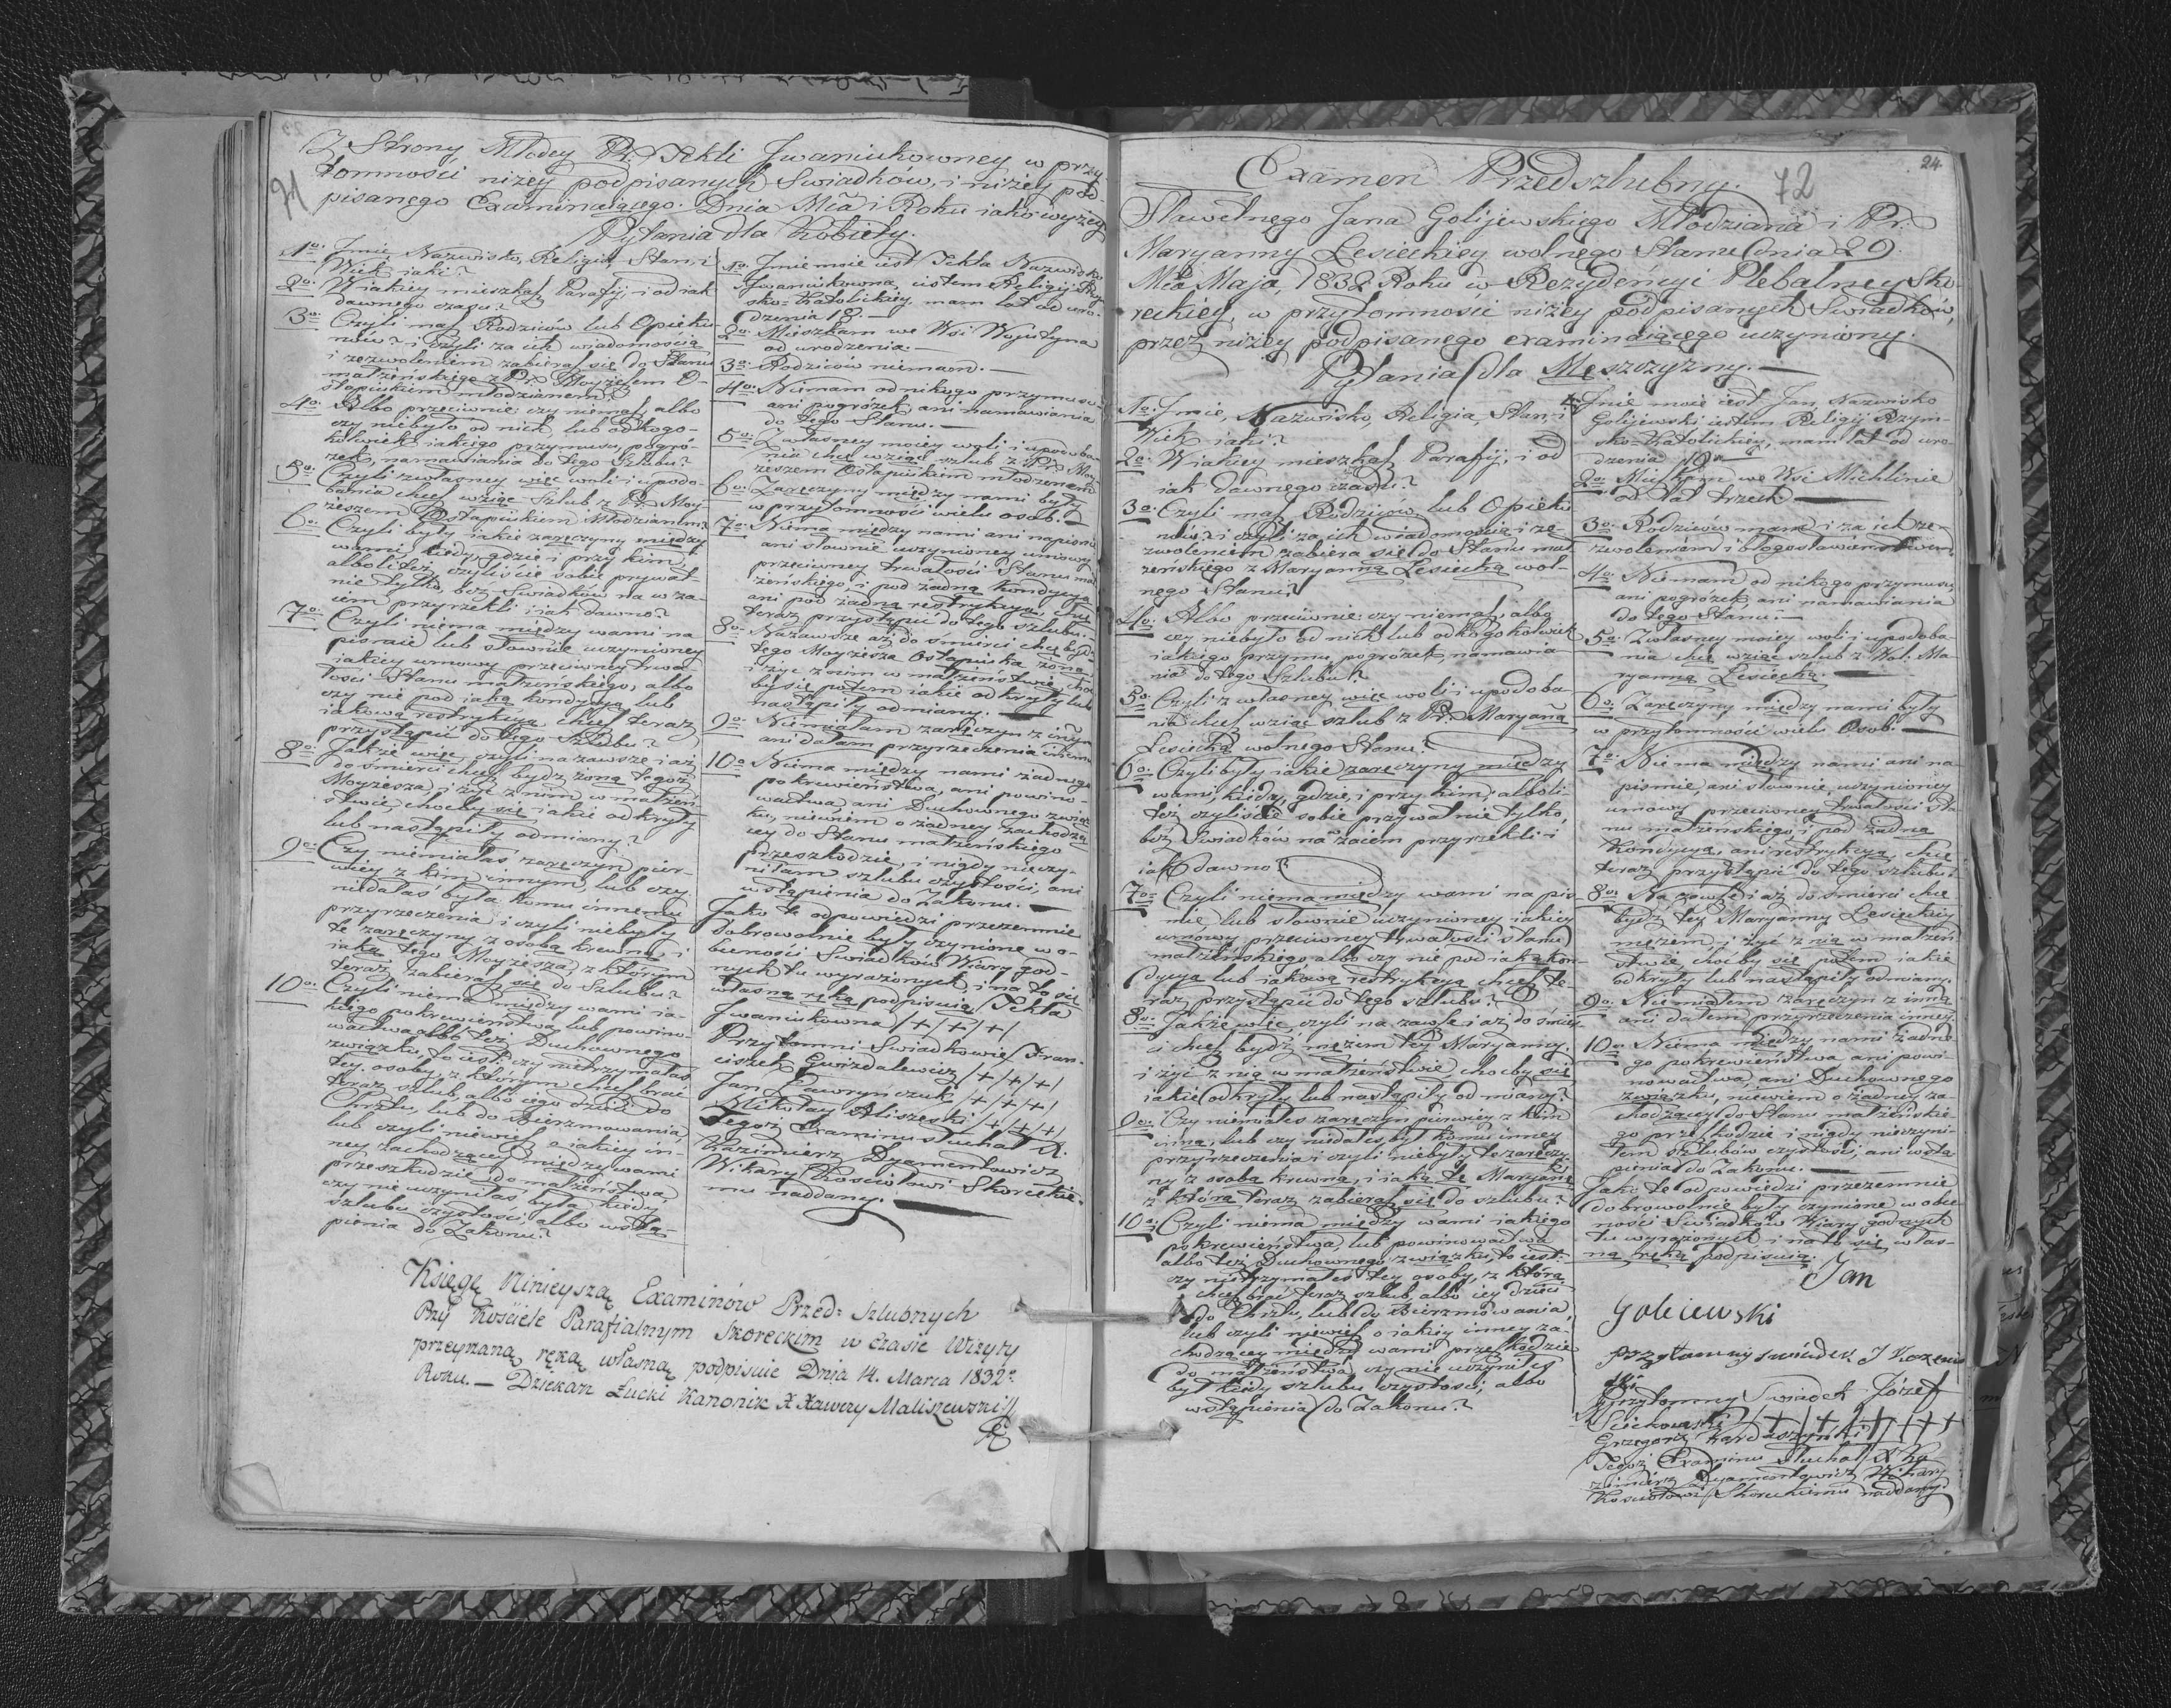 Z Strony Młodey Pr: Tekli Jwaniukowney w przy-
tomności niżey podpisanych Swiadków, i niżey pod-
pisanego Examinaiącego. Dnia Mca i Roku iako wyżey
71
Pytania dla Kobiety.
1o: Jmie, Nazwisko, Religia, Stan, i
Wiek iaki?
2o: W iakiey mieszkasz Parafij, i od iak
dawnego czasu?
3o: Czyli masz Rodziców lub Opieku-
nów? i czyli za ich wiadomością
i zezwoleniem zabierasz się do Stanu
małżeńskiego z Pr: Moyżeszem O-
stapiukiem młodzianem?
4o: Albo przeciwnie: czy niemasz, albo
czy niebyło od nich lub od kogo-
kolwiek iakiego przymusu, pogró-
żek, namawiania do tego Szlubu?
5o: Czyli z własney więc woli i upodo-
bania chcesz wziąć Szlub z Pr: Moy-
żeszem Ostapiukiem Młodzianem?
6o: Czyli były iakie zaręczyny między
wami, kiedy, gdzie i przy kim,
albo li też czyliście sobie prywat-
nie tylko, bez Swiadków na wza-
iem przyrzekli i iak dawno?
7o: Czyli niema między wami na
pismie lub słownie uczynioney
iakiey umowy przeciwney trwa-
łości Stanu małżeńskiego, albo
czy nie pod iaką kondycyą lub
iakową restrykcyą chcesz teraz
przystąpić do tego Szlubu?
8o: Jakże więc, czyli nazawsze i aż
do śmierci chcesz bydź żoną tegoż
Moyżesza, i żyć z nim w małżeń-
stwie, choćby się iakie odkryły
lub nastąpiły odmiany?
9o: Czy niemiałaś zaręczyn pier-
wiey z kim innym, lub czy
niedałaś była komu innemu
przyrzeczenia i czyli niebyły
te zaręczyny z osobą krewną, i
iaką tego Moyżesza, z którym
teraz zabierasz się do Szlubu?
10o: Czyli niema między wami ia-
kiego pokrewieństwa lub powino-
wactwa albo też Duchownego
związku, to iest: czy nietrzymałaś
tey osoby, z którym chcesz brać
teraz szlub, albo iego dzieci do
Chrztu, lub do Bierzmowania,
lub czyli niewiesz o iakiey in-
ney zachodzącey między wami
przeszkodzie do małżeństwa,
czy nie uczyniłaś była kiedy
szlubu czystości, albo wstą-
pienia do Zakonu?
1o: Jmie moie iest Tekla Nazwisko
Jwaniukowna, iestem Religij Rzym-
sko-Katolickiey, mam lat od uro-
dzenia 18.—
2o: Mieszkam we Wsi Wojutynie
od urodzenia.—
3o: Rodziców niemam.—
4o: Nimam od nikogo przymusu
ani pogróżek ani namawiania
do tego Stanu.—
5o: Z własney moiey woli i upodoba-
nia chcę wziąć szlub z Pr: Moy-
żeszem Ostapiukiem młodzianem
6o: Zaręczyny między nami były
w przytomności wielu osob.—
7o: Niema między nami ani na pismie
ani słownie uczynioney umowy
przeciwney trwałości Stanu mał-
żeńskiego, i pod żadną kondycyą
ani pod żadną restrykcyą chcę
teraz przystąpić do tego szlubu.—
8o: Nazawsze aż do śmierci chcę bydź
tego Moyżesza Ostapiuka żoną
i żyć z nim w małżeństwie, choć
by się potem iakie odkryły lub
nastąpiły odmiany.—
9o: Niemiałam zaręczyn z innym
ani dałam przyrzeczenia innemu
10o: Niema między nami żadnego
pokrewieństwa, ani powino-
wactwa, ani Duchownego związ-
ku, niewiem o żadney zachodzą-
cey do Stanu małżeńskiego
przeszkodzie, i nigdy nieczy-
niłam szlubu czystości, ani
wstąpienia do Zakonu.—
Jako te odpowiedzi przezemnie
dobrowolnie były czynione w o-
becności Swiadków Wiary god-
nych tu wyrażonych, i na to się
własną ręką podpisuię Tekla
Jwaniukowna /+/+/+/
Przytomni Swiadkowie Fran-
ciszek Gwizdalewicz /+/+/+/
Jan Ławryńczuk /+/+/+/
Mikołay Aliszeski /+/+/+/
Tegoż Examinu słuchał X.
Kazimierz Dyamentowicz
Wikary Kościołowi Skoreckie-
mu naddany.—
Księgę Ninieyszą Examinów Przed-Szlubnych
Przy Kościele Parafialnym Skoreckim w Czasie Wizyty
przeyrzaną ręką własną podpisuie Dnia 14. Marca 1832o
Roku.— Dziekan Łucki Kanonik X Xawery Maliszewski
24
72
Examen Przedszlubny.
Sławetnego Jana Golijewskiego Młodziana i Pr:
Maryanny Lesieckiey wolnego Stanu Dnia 29
Mca Maja, 1832 Roku w Rezydencyi Plebalney Sko-
reckiey, w przytomności niżey podpisanych Swiadków,
przez niżey podpisanego examinaiącego uczyniony.
Pytania dla Męszczyzny.—
1o: Jmie, Nazwisko, Religia, Stan, i
Wiek iaki?
2o: W iakiey mieszkasz Parafij, i od
iak dawnego czasu?
3o: Czyli masz Rodziców lub Opieku
nów? i czyli za ich wiadomością i ze-
zwoleniem zabierasz się do Stanu mał-
żeńskiego z Maryanną Lesiecką wol-
nego Stanu?
4o: Albo przeciwnie: czy niemasz, albo
czy niebyło od nich lub od kogokolwiek
iakiego przymu pogróżek, namawia
nia do tego Szlubu?
5o: Czyli z własney więc woli i upodoba-
nia chcesz wziąć szlub z Pr: Maryaną
Lesiecką wolnego Stanu?
6o: Czyli były iakie zaręczyny między
wami, kiedy, gdzie, i przy kim, albo li-
też czyliście sobie prywatnie tylko,
bez Swiadków na zaiem przyrzekli i
iak dawno?
7o: Czyli niema między wami na pis-
mie lub słownie uczynioney iakiey
umowy przeciwney trwałości stanu
małżeńskiego albo czy nie pod iaką kon-
dycyą lub iakową restrykcyą chcesz te-
raz przystąpić do tego szlubu?
8o: Jakże więc, czyli na zawsze i aż do śmier-
ci chcesz bydź mężem tey Maryanny.
i żyć z nią w małżeństwie, choćby się
iakie odkryły lub nastąpiły odmiany?
9o: Czy niemiałeś zaręczyn pierwiey z kim
inną, lub czy niedałeś był komu inney
przyrzeczenia i czyli niebyły te zaręczy-
ny z osobą krewną, i iaką tey Maryanki
z którą teraz zabierasz się do szlubu?
10o: Czyli niema między wami iakiego
pokrewieństwa, lub powinowactwa
albo też Duchownego związku, to iest:
czy nietrzymałeś tey osoby, z którą
chcesz brać teraz szlub, albo iey dzieci
do Chrztu, lub do Bierzmowania,
lub czyli niewiesz o iakiey inney za-
chodzącey między wami przeszkodzie
do małżeństwa, czy nie uczyniłeś
był kiedy szlubu czystości, albo
wstąpienia do Zakonu?
1o: Jmie moie iest Jan, Nazwisko
Golijewski iestem Religij Rzym-
sko-Katolickiey, mam lat od uro-
dzenia
2o: Mieszkam we Wsi Michlinie
od lat trzech.—
3o: Rodziców mam i za ich ze-
zwoleniem i błogosławieństwem.
4o: Niemam od nikogo przymusu,
ani pogróżek, ani namawiania
do tego Stanu.—
5o: Z własney moiey woli i upodoba-
nia chcę wziąć szlub z Wol: Ma-
ryanną Lesiecką.—
6o: Zaręczyny między nami były
w przytomności wielu Osob.—
7o: Nie ma między nami ani na
pismie, ani słownie, uczynioney
umowy przeciwney trwałości sta-
nu małżeńskiego, i pod żadną
kondycyą, ani restrykcyą, chcę
teraz przystąpić do tego szlubu.
8o: Na zawsze i aż do śmierci chcę
bydź tey Maryanny Lesieckiey
mężem, i żyć z nią w małżeń
stwie, choćby się potem iakie
odkryły lub nastąpiły odmiany.
9o: Niemiałem zaręczyn z inną
ani dałem przyrzeczenia inney.
10o: Niema między nami żadne-
go pokrewieństwa ani powi-
nowactwa, ani Duchownego
związku, niewiem o żadney za-
chodzącey do Stanu małżeńskie-
go przeszkodzie i nigdy nieczyni-
łem szlubów czystości, ani wstą
pienia do Zakonu.—
Jako te odpowiedzi przezemnie
dobrowolnie były czynione w obec
ności Swiadków Wiary godnych
tu wyrażonych i na to się włas-
ną ręką podpisuię.
Jan
Golejewski
przytomny swiadek J
Przytomny Swiadek Józef
/+/+/+/+++
Grzegorz
Tegoż Examinu słuchał X Ka
zimierz Dyamentowicz Wikary
Kościołowi Skoreckiemu naddany.